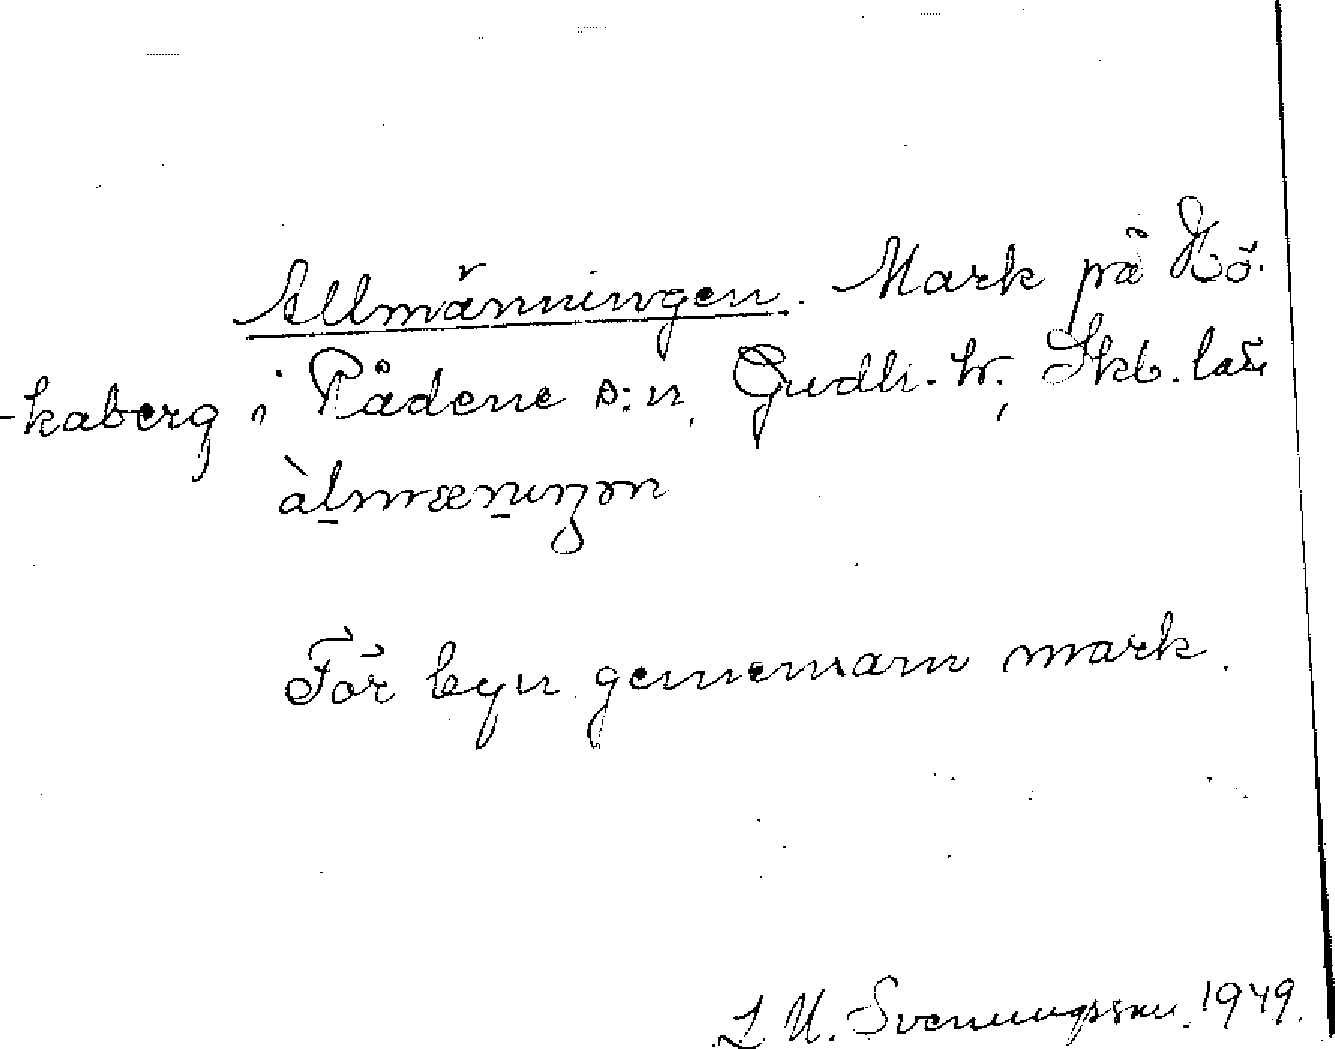 Allmänningen. Mark på Hö-
-kaberg i Rådene s:n, Gudh. hr, Skb. län
àlmæniŋən
För byn gemensam mark.
L. U. Svenungsson. 1949.